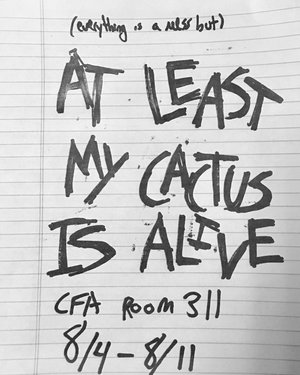 (everything is a mess but)
AT LEAST
MY CACTUS
IS ALIVE
CFA ROOM 311
8/4-8/11